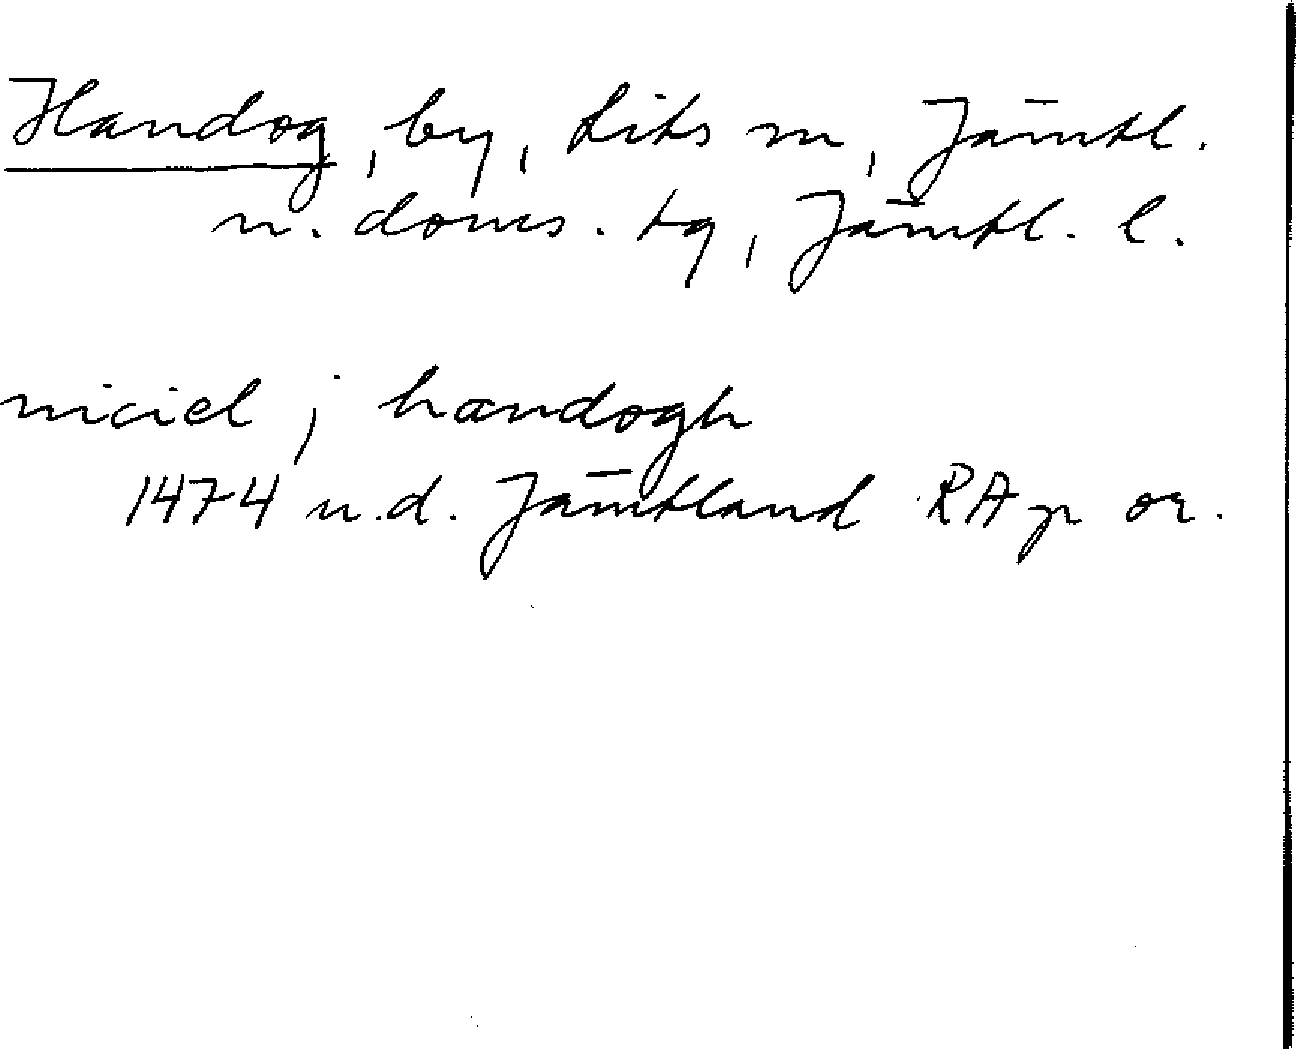 Handog, by, Lits sn, Jämtl.
n. doms. tg, Jämtl. l.
niciel j handogh
1474 u.d. Jämtland RAp or.